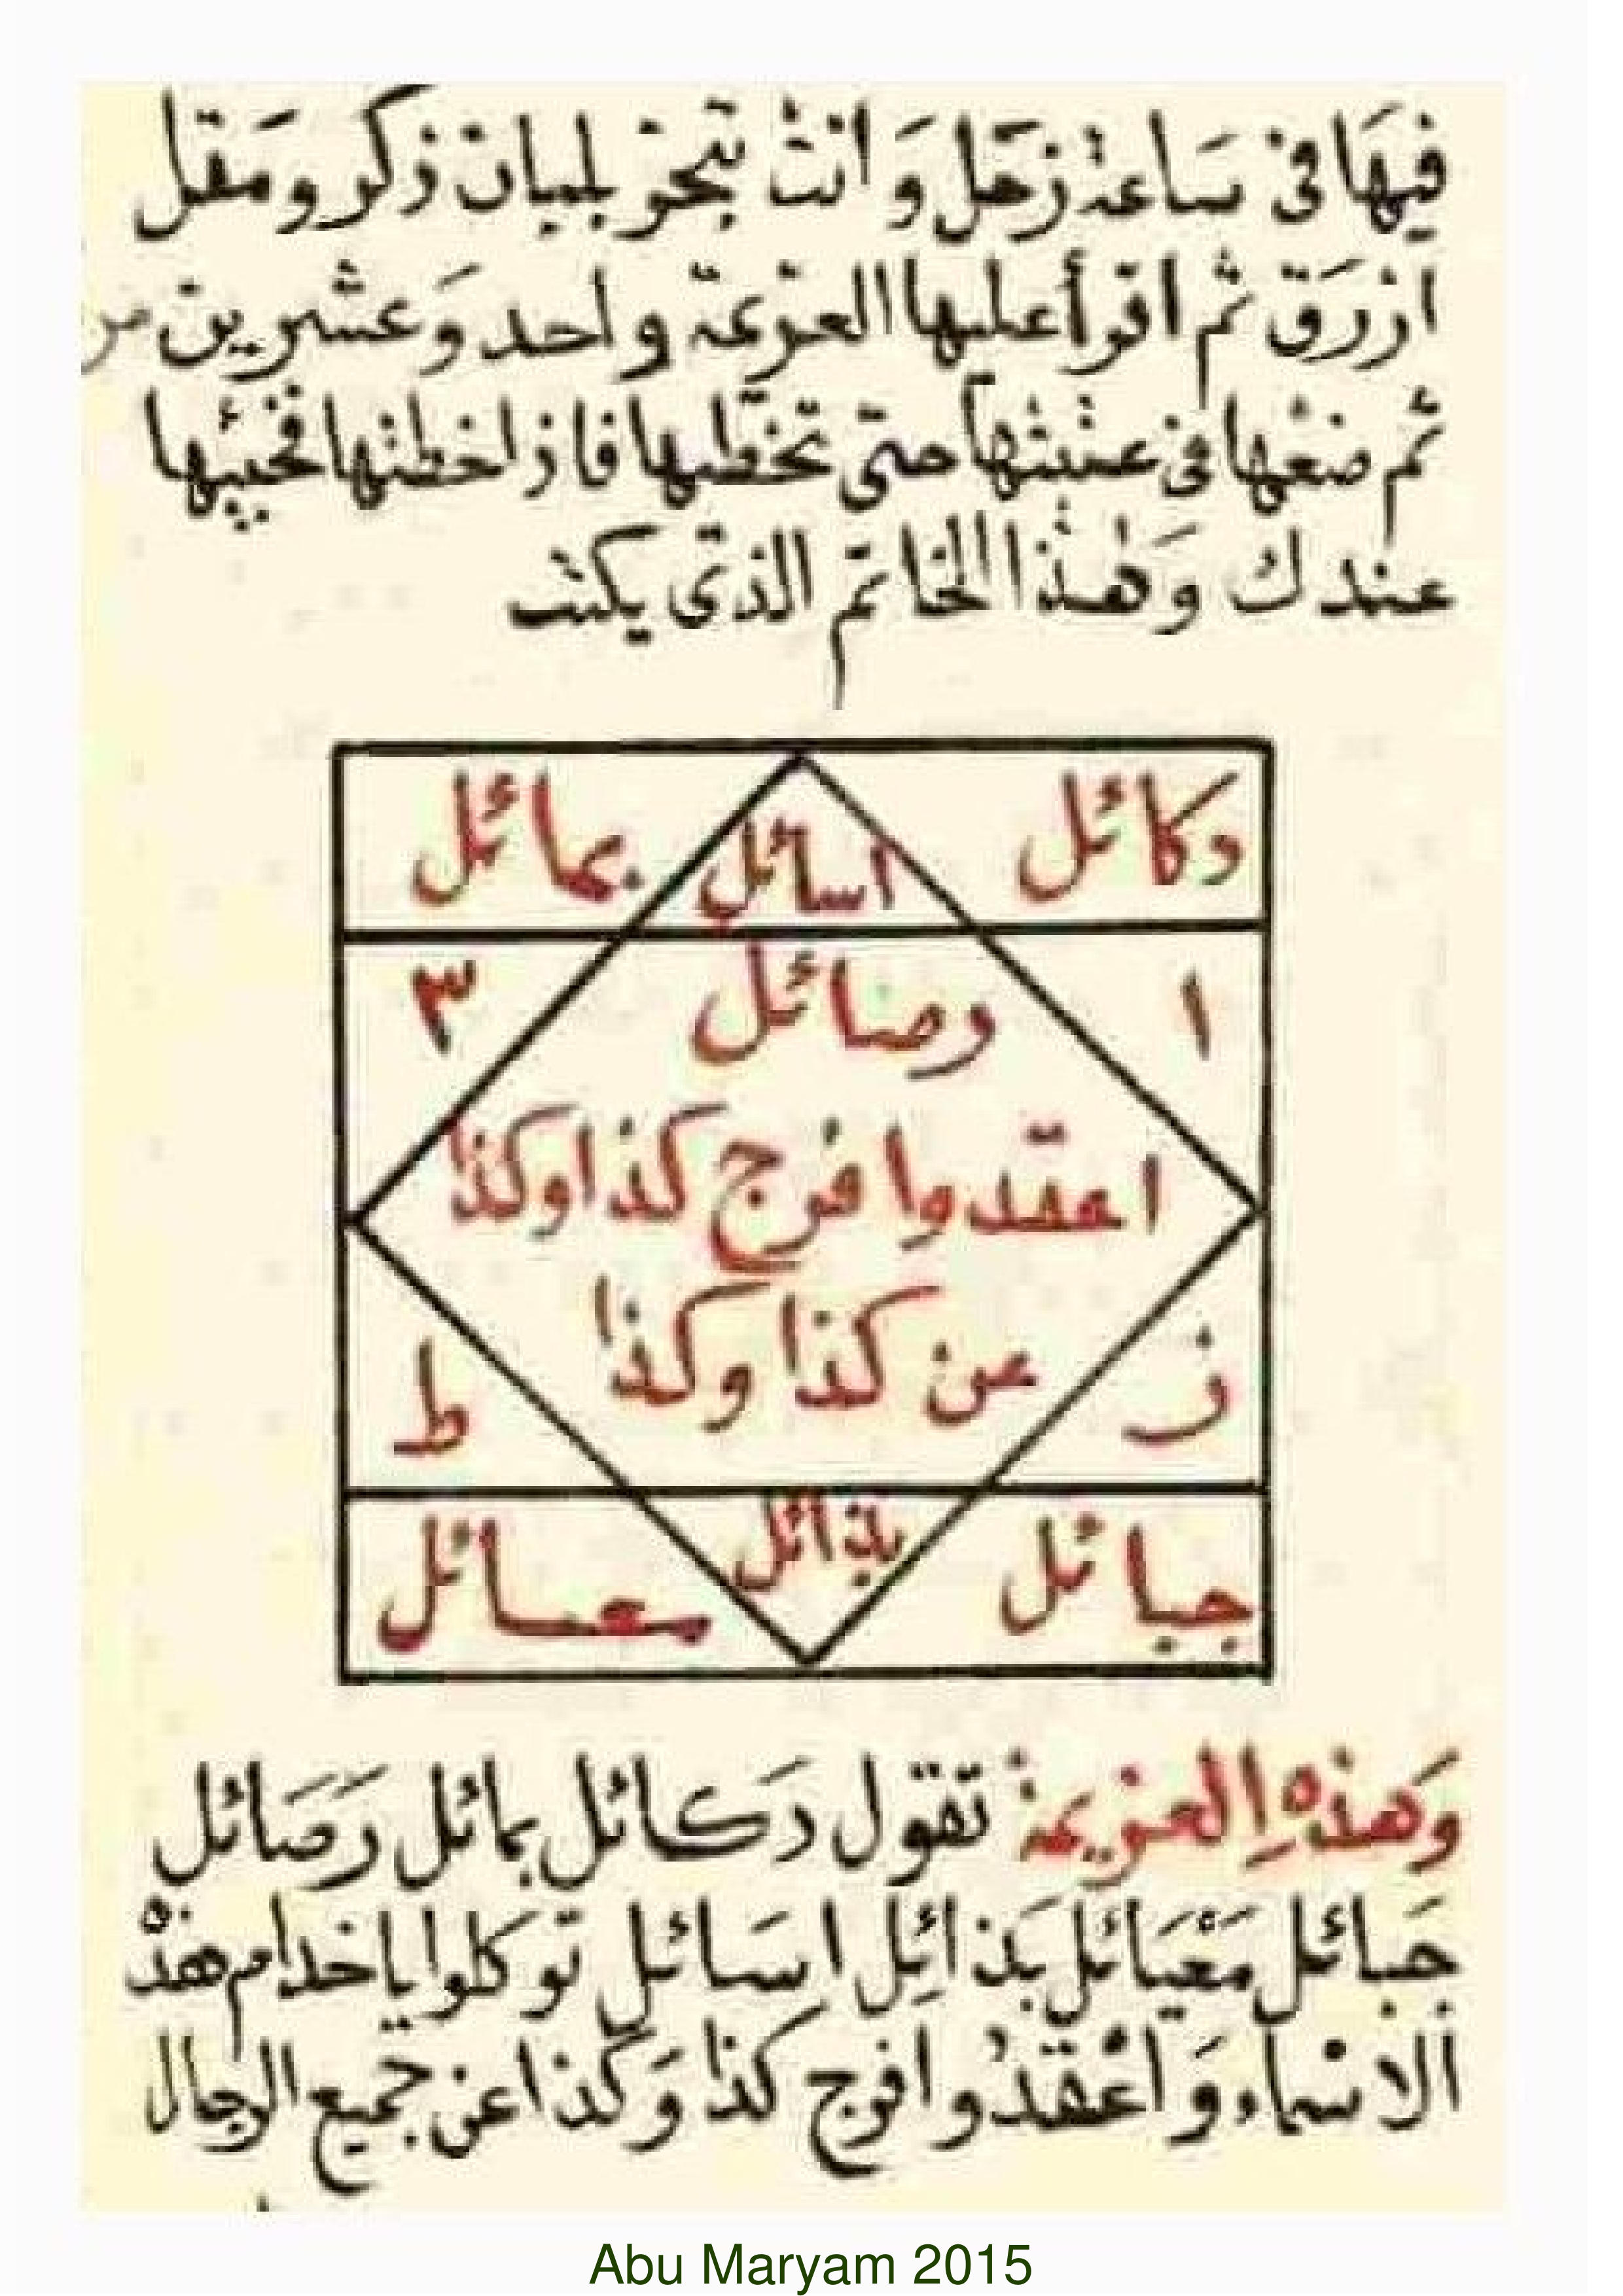 فيها في ساعة زحل وانت تبخر بلبان ذكر ومقل
ازرق ثم اقرأ عليها العزيمة واحد وعشرين
ثم ضعها في عتبتها حتى تخطيها فاذا خطتها فخبيها
عندك وَهذا الخاتم الذي يكتب
دكائل اسائل بمائل
١ وصائل ٣
اعقدوا فرج كذا وكذا
عن كذا وكذا
ز ط
جبائل بذائل معسائل
وَهذه العزيمة تقول دَكائل بمائل رَصَائل
جَبائل مَعْيَائل بَذائِل اسَائل توكلوا يا خدام هذه
الاسماء وَاعْقدُوا فرج كذا وَكذا عن جميع الرجال
Abu Maryam 2015